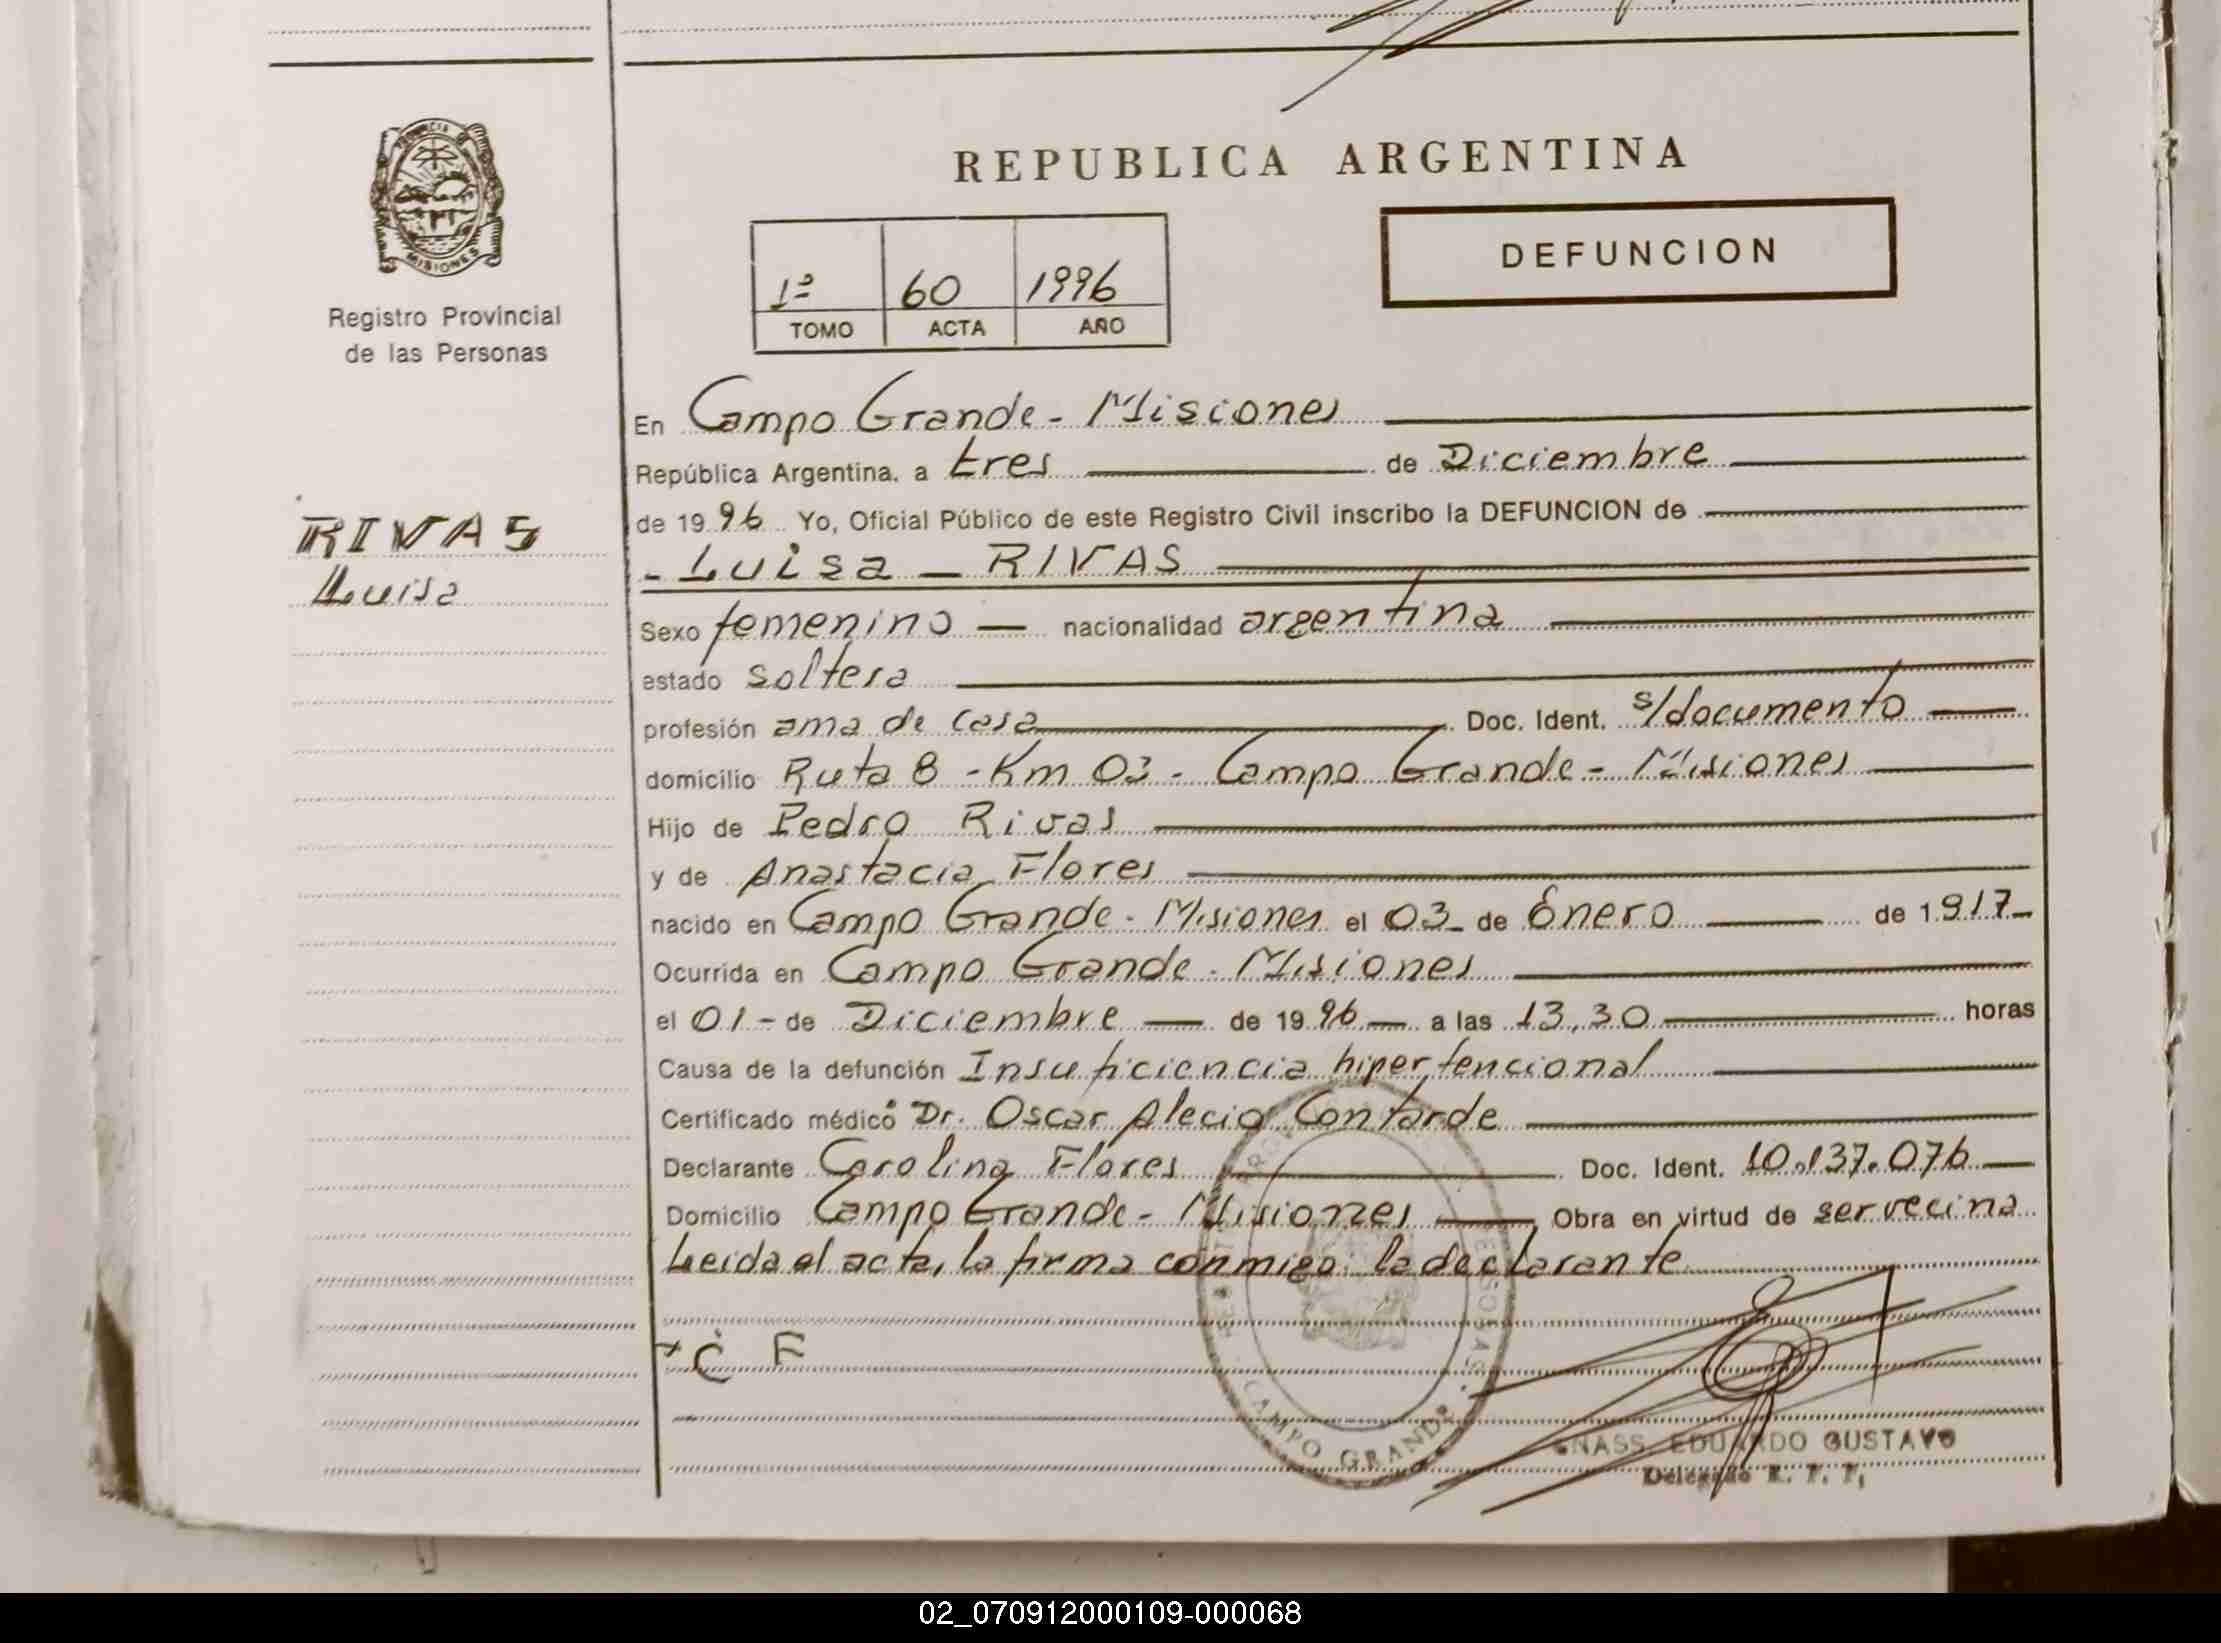 REPUBLICA ARGENTINA
PROVINCIA DE
MISIONES
Registro Provincial
de las Personas
1º 60 1996
TOMO ACTA AÑO
DEFUNCION
En Campo Grande - Misiones
República Argentina, a tres de Diciembre
de 1996 Yo, Oficial Público de este Registro Civil inscribo la DEFUNCION de
RIVAS
- Luisa - RIVAS
Luisa
Sexo femenino - nacionalidad argentina
estado soltera
profesión ama de casa Doc. Ident. s/documento
domicilio Ruta 8 - Km 03 - Campo Grande - Misiones
Hijo de Pedro Rivas
y de Anastacia Flores
nacido en Campo Grande - Misiones el 03 - de Enero de 1917
Ocurrida en Campo Grande - Misiones
el 01 - de Diciembre de 1996 a las 13,30 horas
Causa de la defunción Insuficiencia hipertencional
Certificado médico Dr. Oscar Alecio Contarde
Declarante Carolina Flores Doc. Ident. 10.137.076
Domicilio Campo Grande - Misiones Obra en virtud de ser vecina
Leida el acta, la firma conmigo la declarante
C F
CAMPO GRANDE
EDUARDO GUSTAVO
Delegado R. P. P.
02_070912000109-000068